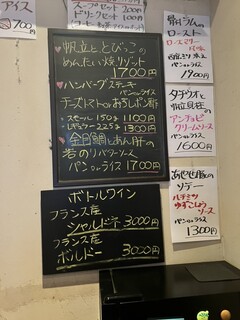 アイス
700
スープセット 100円
ドリンクセット 100円
帆立ととびっこの
めんたい焼リゾット
1700円
ハンバーグステーキ
パンorライス
チーズトマトorおろしポン酢
・スモール 150g 1100円
・レギュラー 225g 1300円
金目鯛とあん肝の
岩のりバターソース
パンorライス 1700円
ボトルワイン
フランス産
シャルドネ 3000円
フランス産
ボルドー 3000円
骨付ラムの
ロースト
ローズマリー風味
パンorライス
1900円
タチウオと
帆立貝柱の
アンチョビ
クリームソース
パンorライス
1600円
あやせ豚の
ソテー
ハチミツ
ゆずこしょう
ソース
パンorライス
1300円